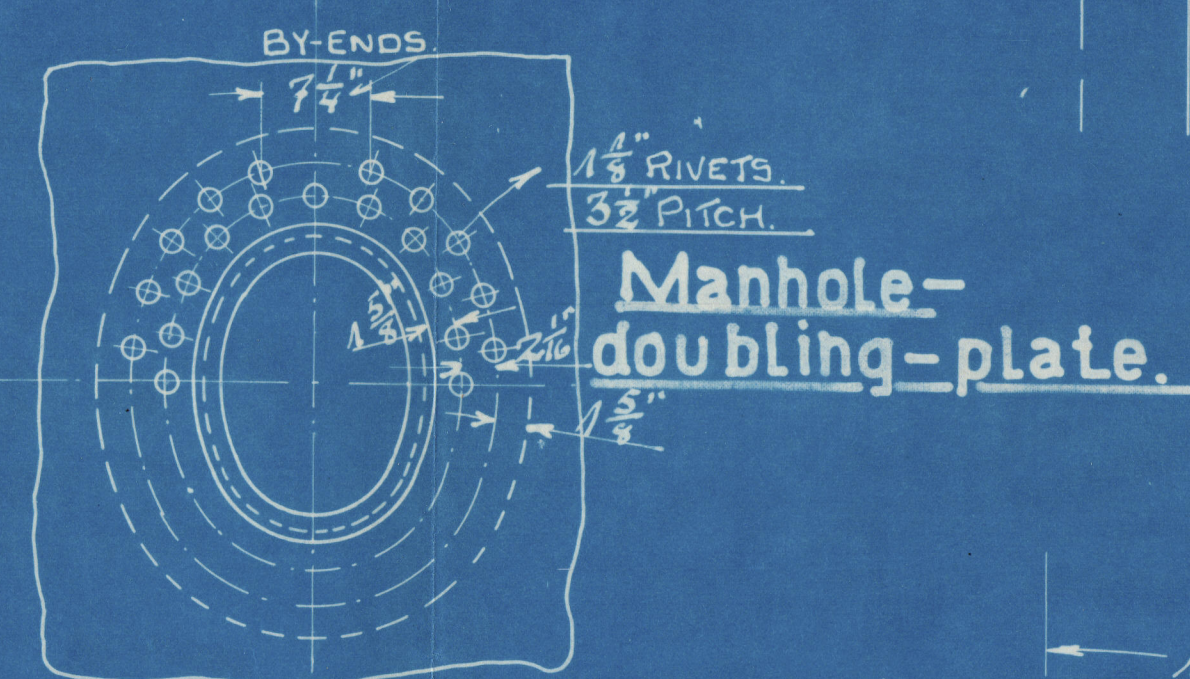 BY-ENDS.
7 1/4"
1 1/8" RIVETS.
3 1/2" PITCH.
Manhole-
doubling-plate.
1 5/8
2 1/16"
1 5/8"